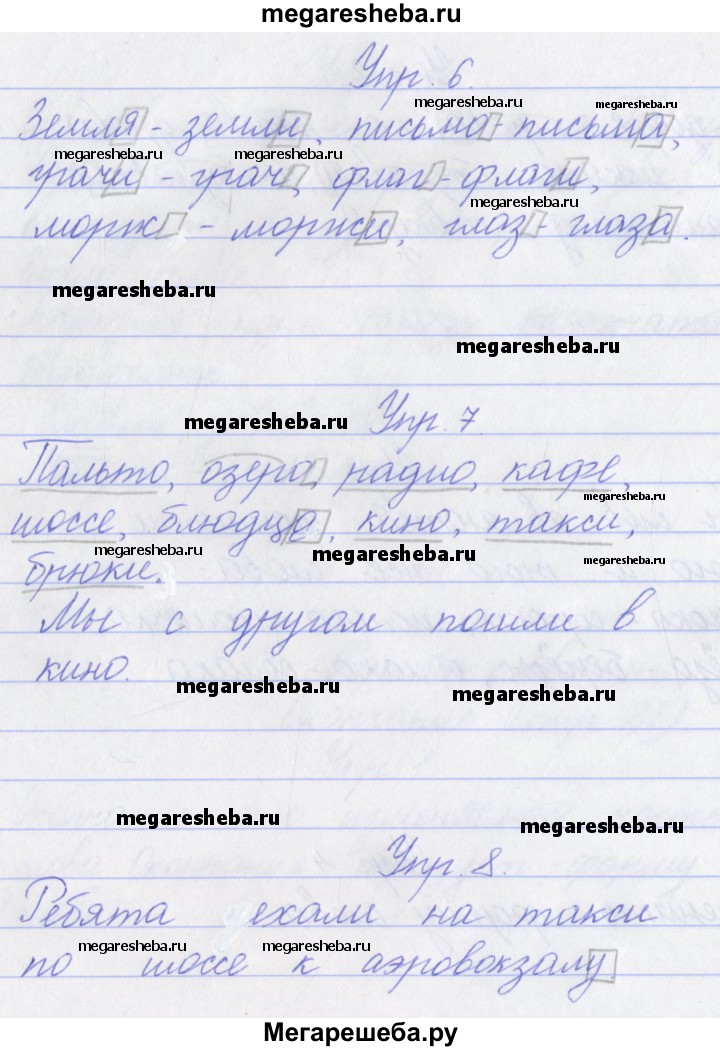 megaresheba.ru
Упр. 6.
megaresheba.ru megaresheba.ru
Земля - земли, письмо - письма,
megaresheba.ru megaresheba.ru
грачи - грач, флаг - флаги,
megaresheba.ru
морж - моржи, глаз - глаза.
megaresheba.ru
megaresheba.ru
megaresheba.ru Упр. 7.
Пальто, озеро, радио, кафе,
megaresheba.ru
шоссе, блюдце, кино, такси,
megaresheba.ru megaresheba.ru megaresheba.ru
брюки.
Мы с другом пошли в
кино.
megaresheba.ru megaresheba.ru
megaresheba.ru megaresheba.ru
Упр. 8.
Ребята уехали на такси
megaresheba.ru megaresheba.ru megaresheba.ru
по шоссе к аэровокзалу.
Мегарешеба.ру